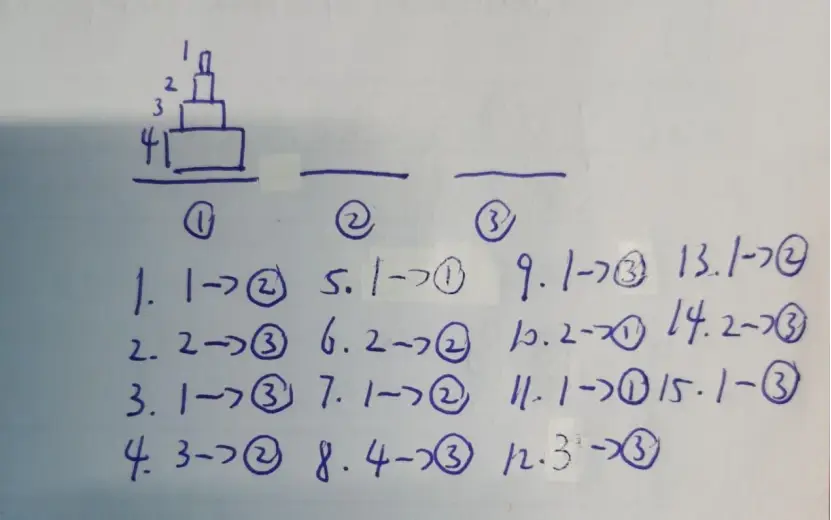 1
2
3
4
① ② ③
1. 1→② 5. 1→① 9. 1→③ 13. 1→②
2. 2→③ 6. 2→② 10. 2→① 14. 2→③
3. 1→③ 7. 1→② 11. 1→① 15. 1-③
4. 3→② 8. 4→③ 12. 3→③